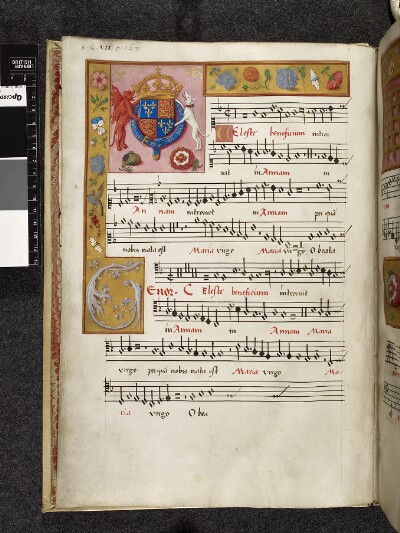 Celeste beneficium introi
uit in Annam in
An nam introiuit in Annam per quā
nobis nata est Maria virgo Maria virgo O beata
Tenor C Eleste beneficium introiuit
in Annam in Annam Maria
virgo per quā nobis nata est Maria virgo Ma
ria virgo O bea
BRITISH